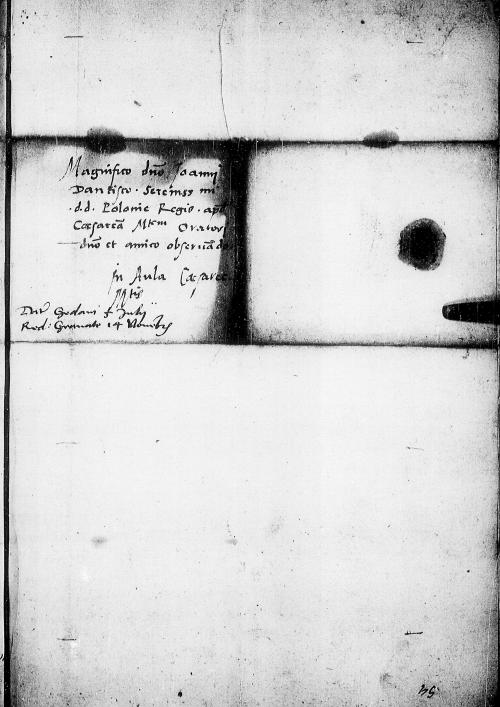 Magnifico dno Joanni
Dantisco · Serenissmi
· d.d. Polonie Regis · apd
Caesareã Mtem Orator
dno et amico obseruãdo
In Aula Caesaree
Mtis
Dat Gedani 5 Julij
Red: Granate 14 Nouẽbris
54